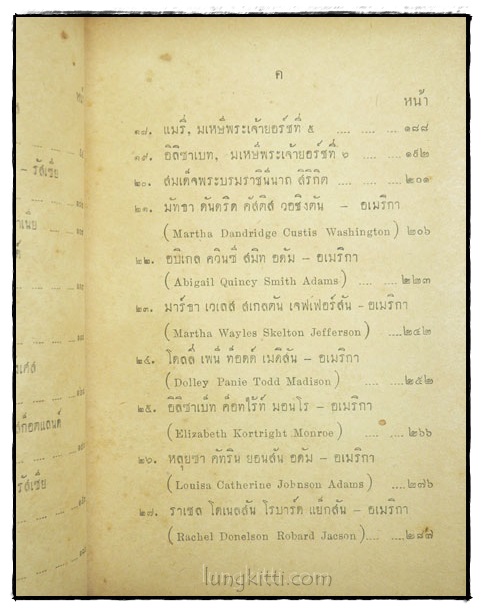 ค
หน้า
๑๘. แมรี่, มเหษีพระเจ้ายอร์ชที่ ๕ .... .... ....๑๘๘
๑๙. อิลิซาเบท, มเหษีพระเจ้ายอร์ชที่ ๖ .... ....๑๙๒
๒๐. สมเด็จพระบรมราชินีนาถ สิริกิต .... .... ....๒๐๑
๒๑. มัทธา ดันดริด คัสติส วอชิงตัน – อเมริกา
(Martha Dandridge Custis Washington) ๒๐๖
๒๒. อบิเกล ควินซี่ สมิท อดัม – อเมริกา
(Abigail Quincy Smith Adams) .... ....๒๒๓
๒๓. มาร์ธา เวเลส์ สเกลตัน เจฟเฟอร์สัน – อเมริกา
(Martha Wayles Skelton Jefferson) ....๒๔๒
๒๔. โดลลี่ เพน์ ท็อดด์ เมดิสัน – อเมริกา
(Dolley Panie Todd Madison) .... ....๒๕๒
๒๕. อิลิซาเบ็ท ค็อทไร้ท์ มอนโร – อเมริกา
(Elizabeth Kortright Monroe) .... ....๒๖๖
๒๖. หลุยซา คัทริน ยอนสัน อดัม – อเมริกา
(Louisa Catherine Johnson Adams) ....๒๗๖
๒๘. ราเชล โดเนลสัน โรบาร์ด แย็กสัน – อเมริกา
(Rachel Donelson Robard Jacson).... ....๒๘๗
– รัสเซีย
รัสเซีย
lungkitti.com